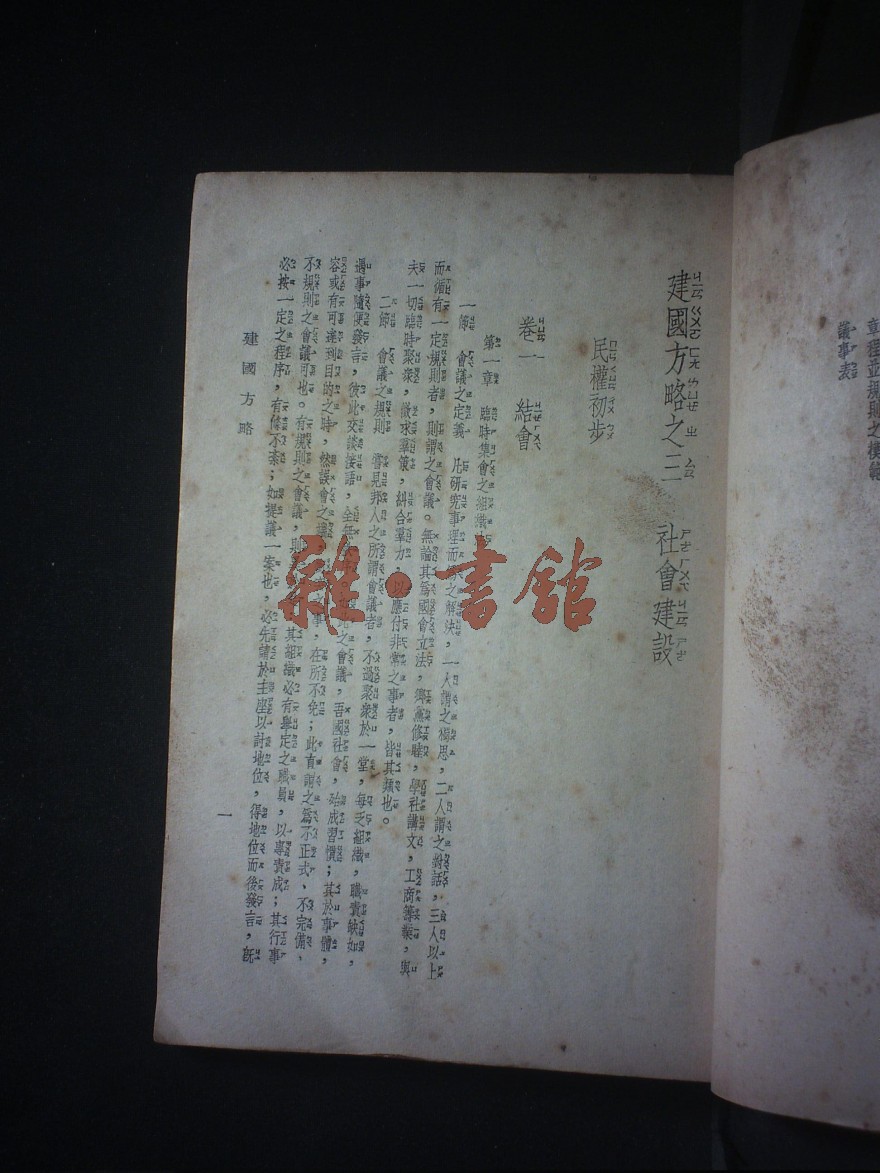 章程並規則之模範
議事表
建國方略之三 社會建設
民權初步
卷一 結會
第一章 臨時集會之組織法
一節 會議之定義 凡研究事理而爲之解決，一人謂之獨思，二人謂之對話，三人以上
而循有一定規則者，則謂之會議。無論其爲國會立法，鄉黨修睦，學社講文，工商籌業，與
夫一切臨時聚衆，徵求羣策，糾合羣力，以應付非常之事者，皆其類也。
二節 會議之規則 嘗見邦人之所謂會議者，不過聚衆於一堂，每乏組織，職責缺如，
遇事隨便發言，彼此交談接語，全無此之會議，吾國社會，殆成習慣；其於事體，
容或有可達到目的之時，然誤會之之事，在所不免；此直謂之爲不正式、不完備、
不規則之會議可也。有規則之會議，則其組織必有舉定之職員，以專責成；其行事
必按一定之程序，有條不紊；如提議一案也，必先請於主座以討地位，得地位而後發言，既
建國方略
一
雜·書館